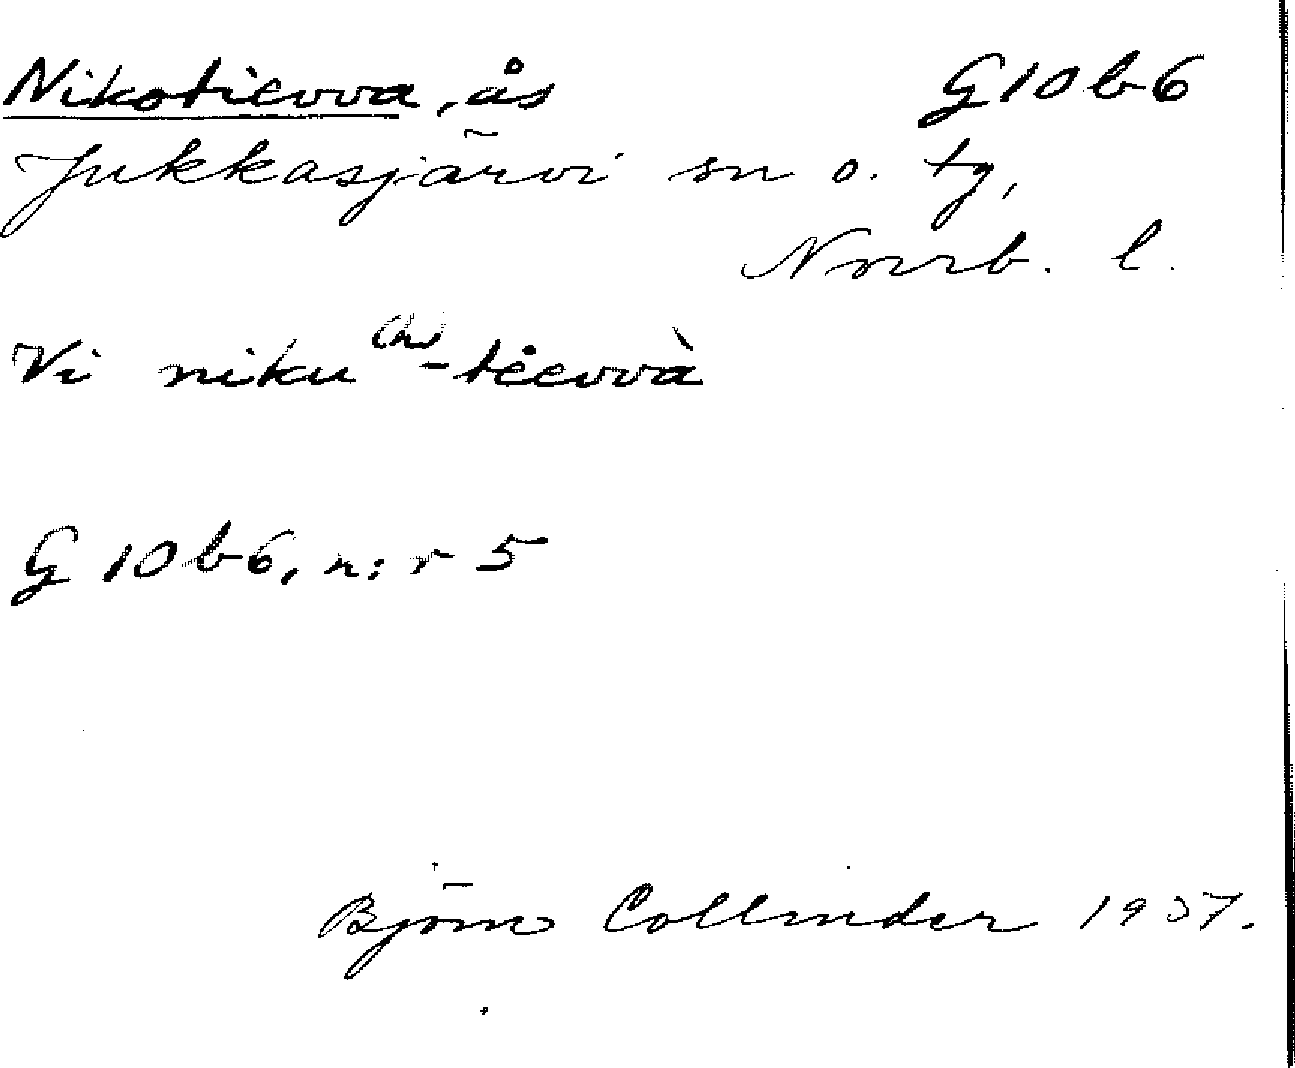 Nikotievva, ås G10b6
Jukkasjärvi sn o. tg,
Norrb. l.
Vi niku -tėevvà
G 10 b 6, n:r 5
Björn Collinder 1937.